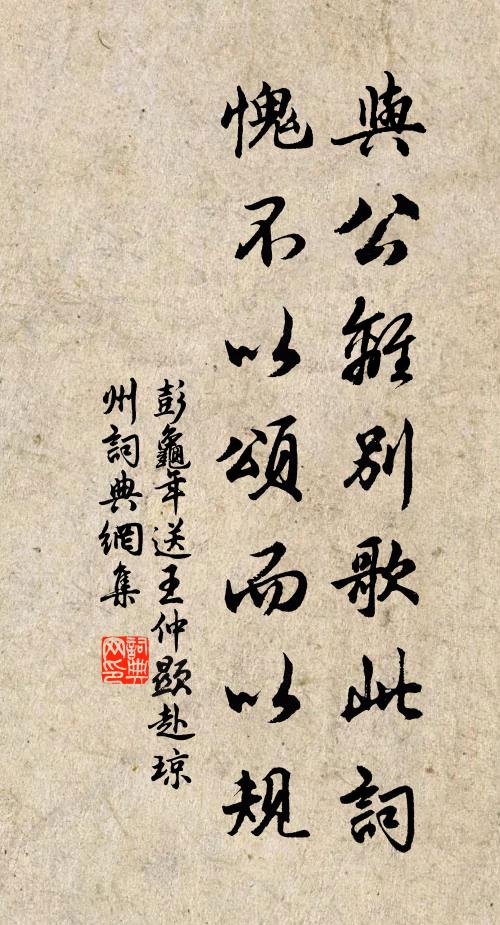 與公離別歌此詞
愧不以頌而以規
彭龜年送王仲顯赴瓊
州詞典網集
詞典
网印